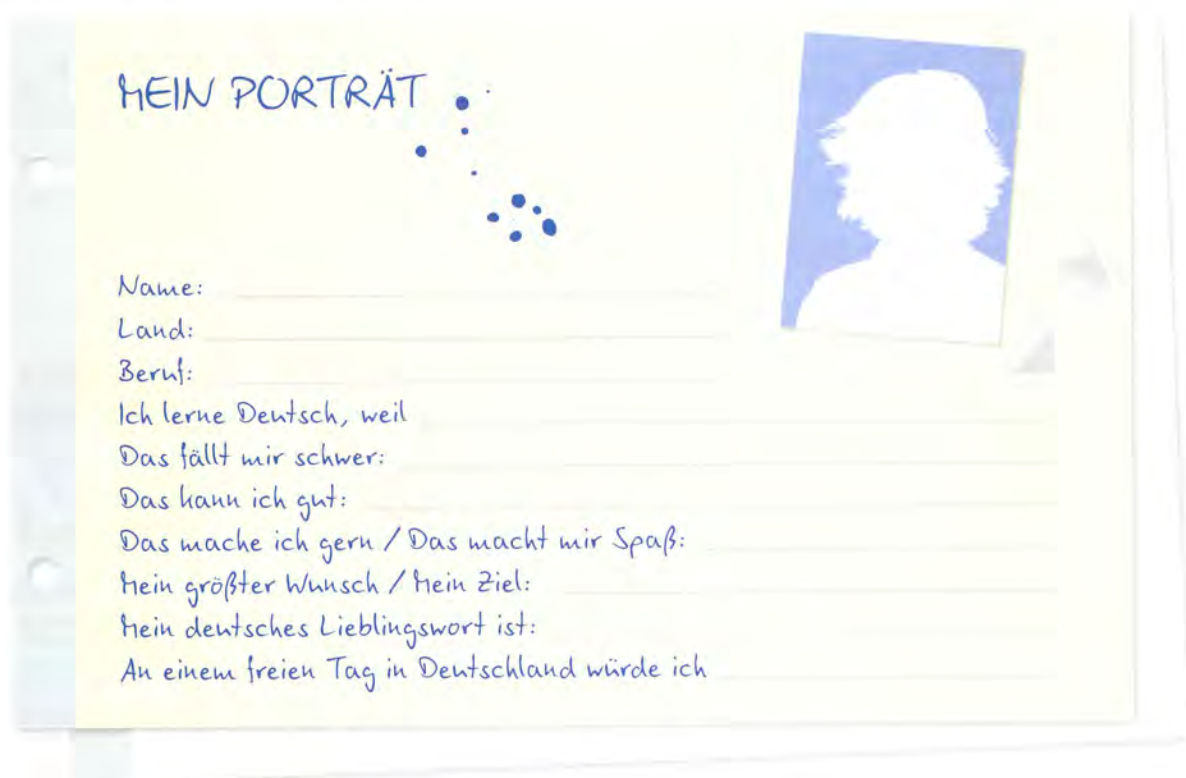 MEIN PORTRÄT
Name:
Land:
Beruf:
Ich lerne Deutsch, weil
Das fällt mir schwer:
Das kann ich gut:
Das mache ich gern / Das macht mir Spaß:
Mein größter Wunsch / Mein Ziel:
Mein deutsches Lieblingswort ist:
An einem freien Tag in Deutschland würde ich